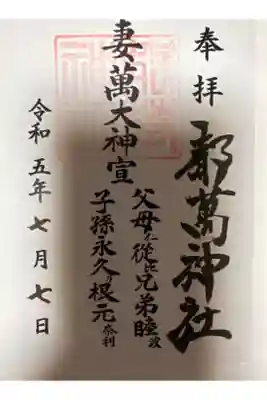 奉拝
都萬神社
妻萬大神宣
父母仁従比兄弟睦波
子孫永久乃根元奈利
令和五年七月七日